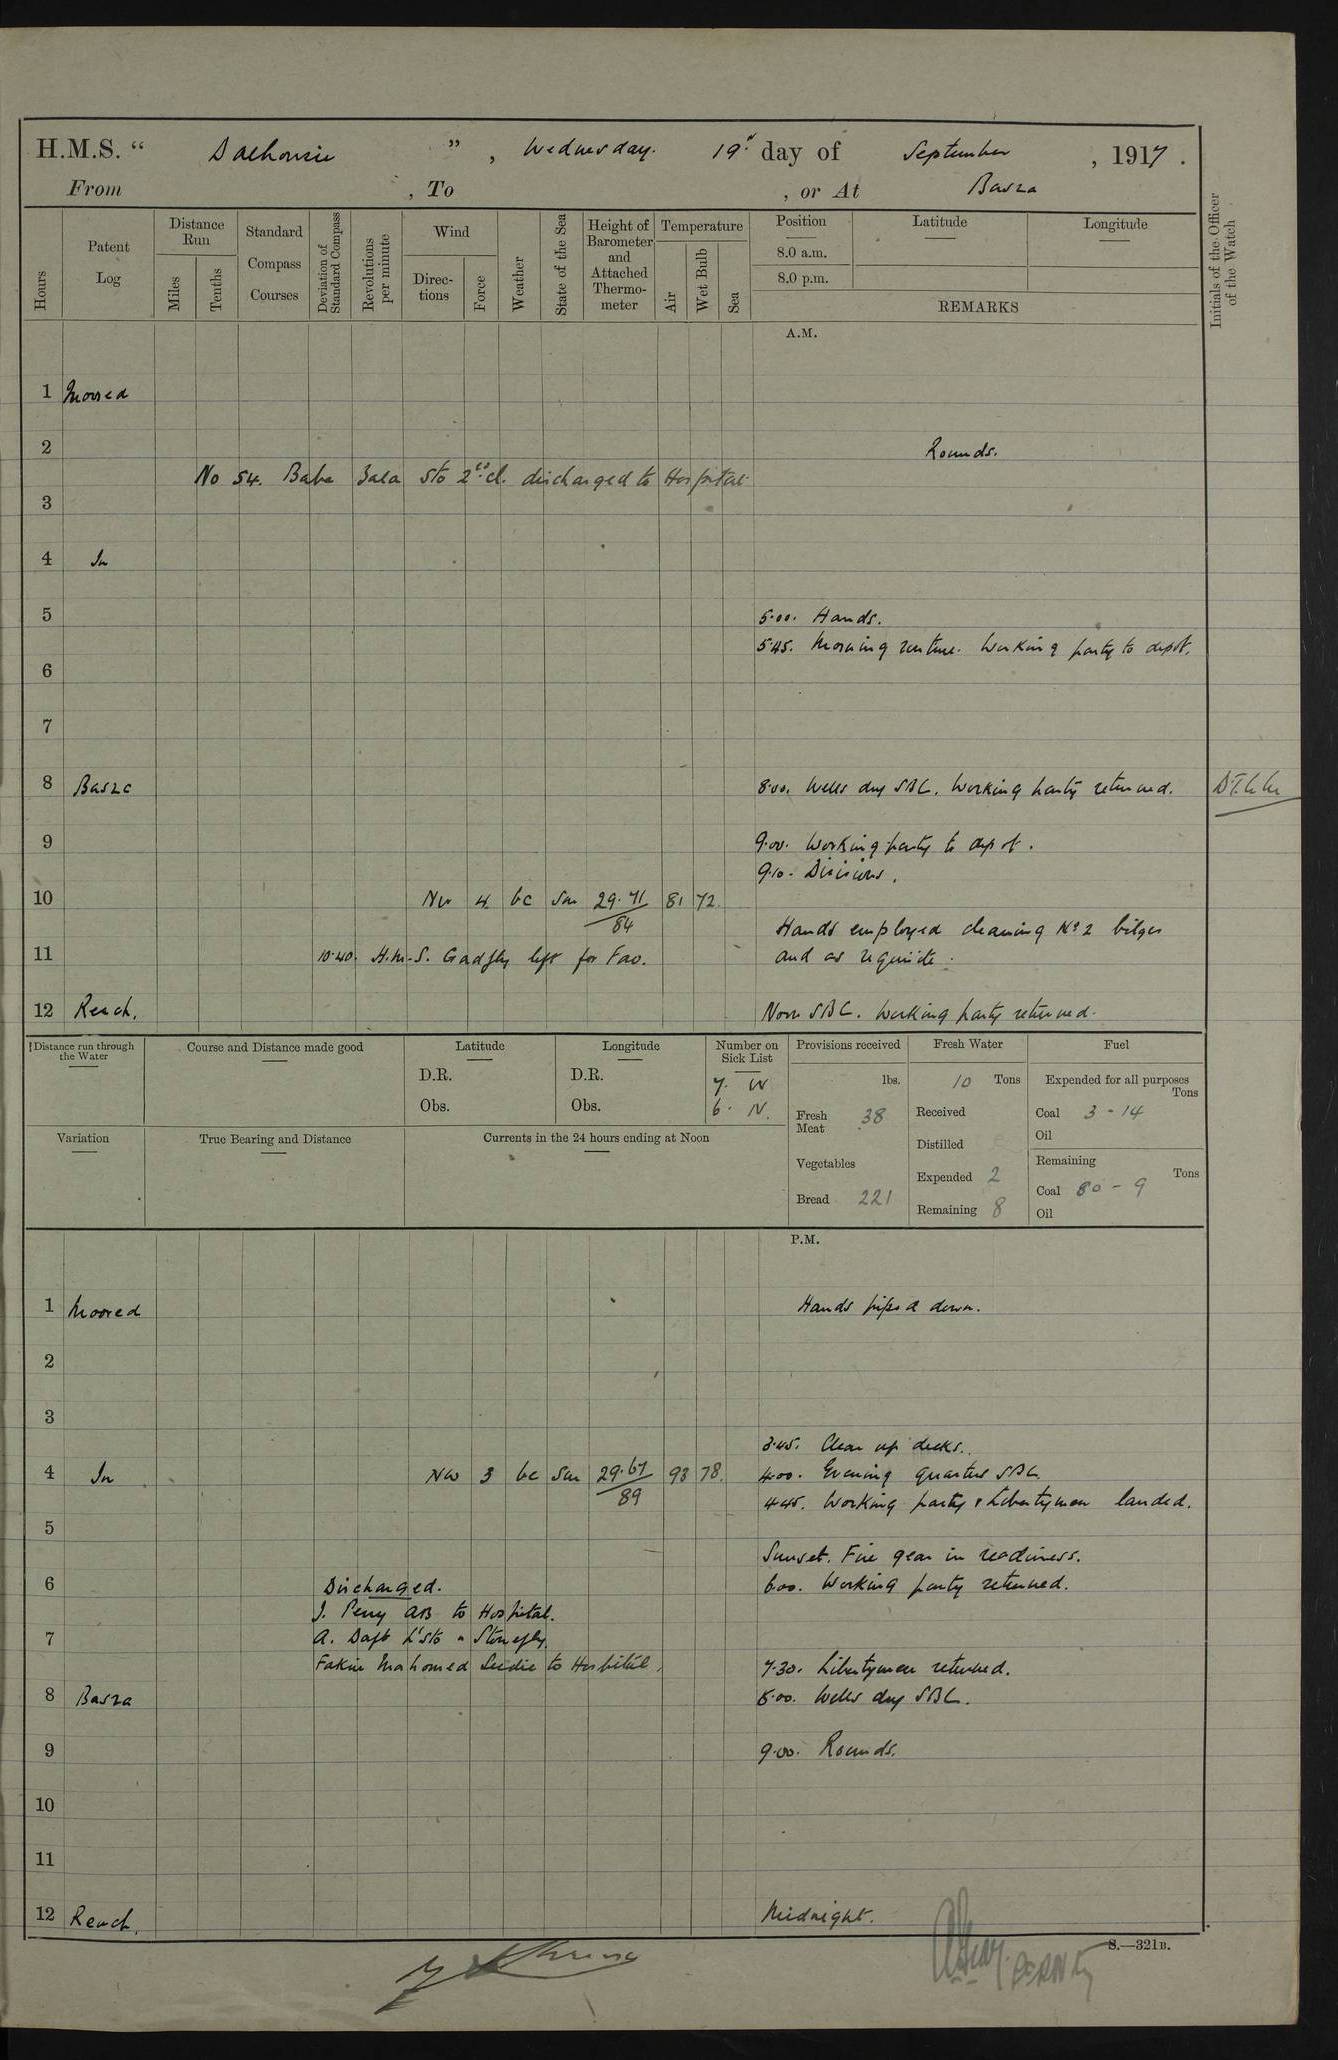 H.M.S. “ Dalhousie ” , Wednesday. 19th day of September , 1917 .
From , To , or At Basra
Hours
Patent Log
Distance Run
Miles
Tenths
Standard Compass Courses
Deviation of Standard Compass
Revolutions per minute
Wind
Direc- tions
Force
Weather
State of the Sea
Height of Barometer and Attached Thermo- meter
Temperature
Air
Wet Bulb
Sea
Position
Latitude
Longitude
8.0 a.m.
8.0 p.m.
REMARKS
Initials of the Officer of the Watch
A.M.
1 Moored
2 Rounds.
No 54. Baba Zala Sto 2nd cl. discharged to Hospital
3
4 In
5 5.00. Hands.
5.45. Morning routine. Working party to depot.
6
7
8 Basra 8.00. Wells dry SBC. Working party returned.
9 9.00. Working party to depot.
9.10. Divisions.
10 NW 4 bc Sm 29.71 81 72
84
Hands employed cleaning No 2 bilges
11 10.40. H.M.S. Gadfly left for Fao. and as requisite.
12 Reach. Noon SBC. Working party returned.
Distance run through the Water
Course and Distance made good
Latitude
D.R.
Obs.
Longitude
D.R.
Obs.
Number on Sick List
7. W
6. N.
Provisions received
lbs.
Fresh Meat 38
Vegetables
Bread 221
Fresh Water
10 Tons
Received
Distilled
Expended 2
Remaining 8
Fuel
Expended for all purposes
Tons
Coal 3 - 14
Oil
Remaining
Tons
Coal 80 - 9
Oil
Variation
True Bearing and Distance
Currents in the 24 hours ending at Noon
P.M.
1 Moored Hands piped down.
2
3
3.45. Clear up decks.
4 In NW 3 bc Sm 29.67 93 78. 4.00. Evening quarters SBC.
89
4.45. Working party & Libertymen landed.
5
Sunset. Fire gear in readiness.
6 Discharged. 6.00. Working party returned.
J. Perry AB to Hospital.
7 A. Daft L'Sto " Stonefly.
Fakir Mahomed Seedie to Hospital. 7.30. Libertymen returned.
8 Basra 8.00. Wells dry SBC.
9 9.00. Rounds.
10
11
12 Reach. Midnight.
S.—321B.